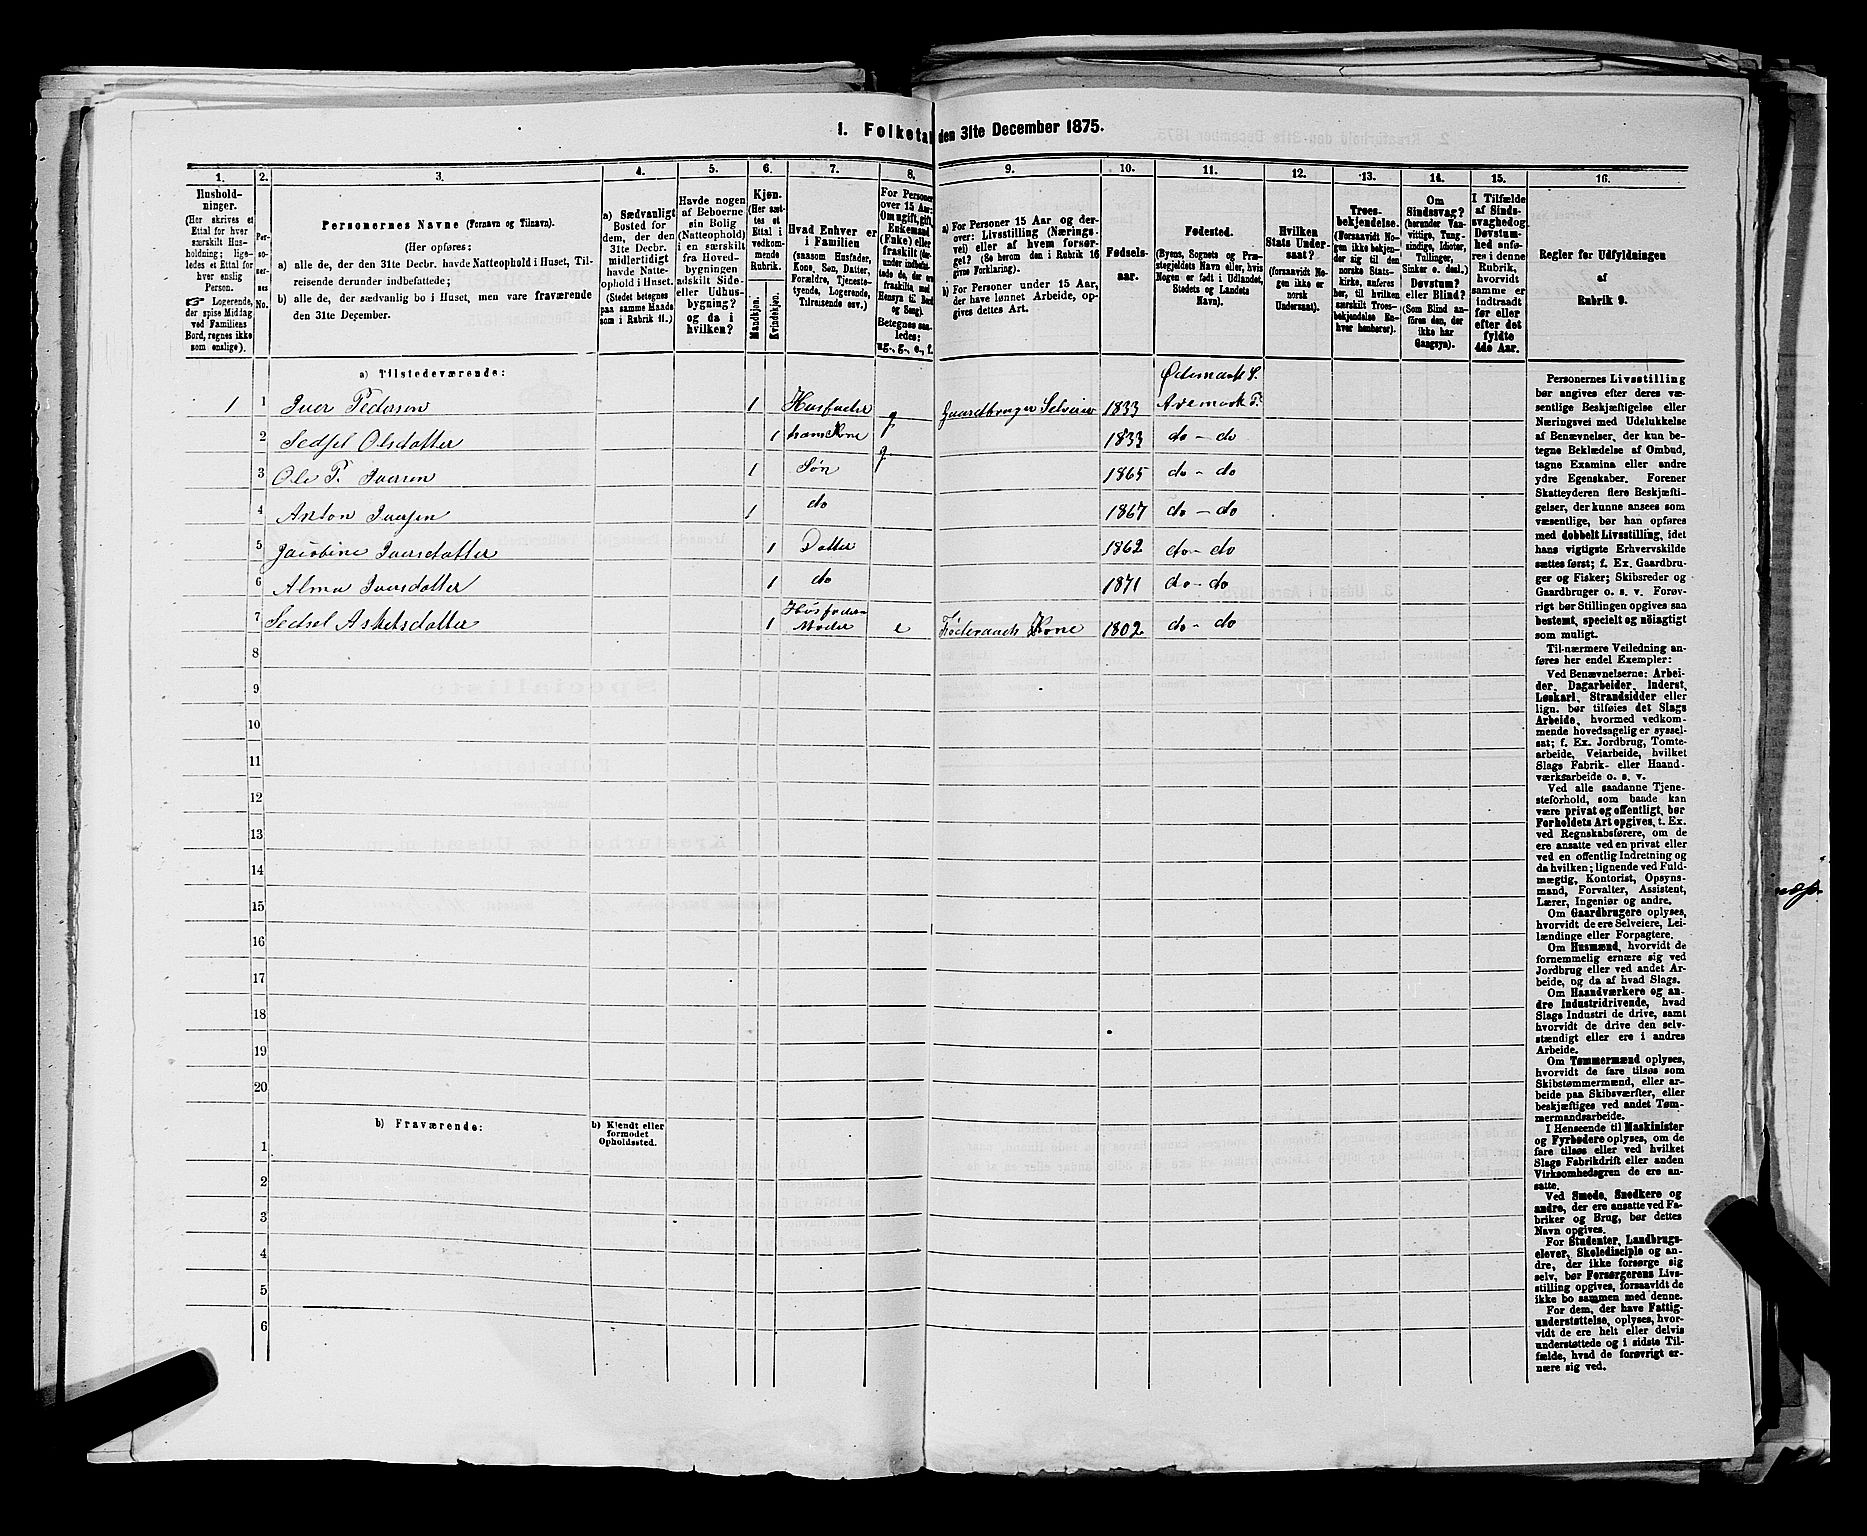 1. Folketal den 31te December 1875.
1.
2.
3.
4.
5.
6.
7.
8.
9.
10.
11.
12.
13.
14.
15.
16.
Hushold-
ninger.
(Her skrives et
Ettal for hver
særskilt Hus-
holdning; lige-
ledes et Ettal for
hver enslig
Person.
☞ Logerende,
der spise Middag
ved Familiens
Bord, regnes ikke
som enslige).
Per-
soner-
nes
No.
Personernes Navne (Fornavn og Tilnavn).
(Her opføres:
a) alle de, der den 31te Decbr. havde Natteophold i Huset, Til-
reisende derunder indbefattede;
b) alle de, der sædvanlig bo i Huset, men vare fraværende
den 31te December.
a) Sædvanligt
Bosted for
dem, der den
31te Decbr.
midlertidigt
havde Natte-
ophold i Huset.
(Stedet betegnes
paa samme Maade
som i Rubrik 11.)
Havde nogen
af Beboerne
sin Bolig
(Natteophold)
i en særskilt
fra Hoved-
bygningen
adskilt Side-
eller Udhus-
bygning?
og da i
hvilken?
Kjøn.
(Her sæt-
tes et
Ettal i
vedkom-
mende
Rubrik.
Mandkjøn.
Kvindekjøn.
Hvad Enhver er
i Familien
(saasom Husfader,
Kone, Søn, Datter,
Forældre, Tjeneste-
tyende, Logerende,
Tilreisende osv.)
For Personer
over 15 Aar:
Om ugift, gift,
Enkemand
(Enke) eller
fraskilt (der-
under indbefat-
tede de, der ere
fraskilte, med
Hensyn til Bord
og Seng).
Betegnes saa-
ledes:
ug., g., e., f.
a) For Personer 15 Aar og der-
over: Livsstilling (Nærings-
vei) eller af hvem forsør-
get? (Se herom den i Rubrik 16
givne Forklaring).
b) For Personer under 15 Aar,
der have lønnet Arbeide, op-
gives dettes Art.
Fødsels-
aar.
Fødested.
(Byens, Sognets og Præ-
stegjeldets Navn eller, hvis
Nogen er født i Udlandet,
Stedets og Landets
Navn).
Hvilken
Stats Under-
saat?
(forsaavidt No-
gen ikke er
norsk
Undersaat).
Troes-
bekjendelse.
(Forsaavidt No-
gen ikke bekjen-
der sig til den
norske Stats-
kirke, anføres
her, til hvilken
særskilt Troes-
bekjendelse En-
hver henhører).
Om
Sindssvag?
(herunder Van-
vittige, Tung-
sindige, Idioter,
Tullinger,
Sinker o. desl.)
Døvstum?
eller Blind?
(Som Blind an-
føres den, der
ikke har
Gangsyn).
I Tilfælde
af Sinds-
svaghed og
Døvstum-
hed anfø-
res i denne
Rubrik,
hvorvidt
samme er
indtraadt
før eller
efter det
fyldte
4de Aar.
Regler for Udfyldningen
af
Rubrik 9.
a) Tilstedeværende:
Ødemark S.
1 1 Iver Pedersen 1 Husfader g Gaardbruger Selveier 1833 Aremark P.
2 Sedsel Olsdatter 1 hans Kone g 1833 do - do
3 Ole P. Iversen 1 Søn 1865 do - do
4 Anton Iversen 1 do 1867 do - do
5 Jacobine Iversdatter 1 Datter 1862 do - do
6 Alma Iversdatter 1 do 1871 do - do
7 Sedsel Askelsdatter 1 Husfaderens Moder e Føderaads Kone 1802 do - do
8
9
10
11
12
13
14
15
16
17
18
19
20
b) Fraværende:
b) Kjendt eller
formodet
Opholdssted.
1
2
3
4
5
6
Personernes Livsstilling
bør angives efter deres væ-
sentlige Beskjæftigelse eller
Næringsvei med Udelukkelse
af Benævnelser, der kun be-
tegne Beklædelse af Ombud,
tagne Examina eller andre
ydre Egenskaber. Forener
Skatteyderen flere Beskjæfti-
gelser, der kunne ansees som
væsentlige, bør han opføres
med dobbelt Livsstilling, idet
hans vigtigste Erhvervskilde
sættes først; f. Ex. Gaardbru-
ger og Fisker; Skibsreder og
Gaardbruger o. s. v. Forøv-
rigt bør Stillingen opgives saa
bestemt, specielt og nöiagtigt
som muligt.
Til nærmere Veiledning an-
føres her endel Exempler:
Ved Benævnelserne: Arbei-
der, Dagarbeider, Inderst,
Løskarl, Strandsidder eller
lign. bør tilføies det Slags
Arbeide, hvormed vedkom-
mende hovedsagelig er syssel-
sat; f. Ex. Jordbrug, Tomte-
arbeide, Veiarbeide, hvilket
Slags Fabrik- eller Haand-
værksarbeide o. s. v.
Ved alle saadanne Tjene-
steforhold, som baade kan
være privat og offentligt, bør
Forholdets Art opgives, t. Ex.
ved Regnskabsførere, om de
ere ansatte ved en privat eller
ved en offentlig Indretning og
da hvilken; lignende ved Fuld-
mægtig, Kontorist, Opsyns-
mand, Forvalter, Assistent,
Lærer, Ingeniør og andre.
Om Gaardbrugere oplyses,
hvorvidt de ere Selveiere, Lei-
lændinge eller Forpagtere.
Om Husmænd, hvorvidt de
fornemmelig ernære sig ved
Jordbrug eller ved andet Ar-
beide, og da af hvad Slags.
Om Haandværkere og an-
dre Industridrivende, hvad
Slags Industri de drive, samt
hvorvidt de drive den selv-
stændigt eller ere i andres
Arbeide.
Om Tømmermænd oplyses,
hvorvidt de fare tilsøs som
Skibstømmermænd, eller ar-
beide paa Skibsværfter, eller
beskjæftiges ved andet Tøm-
mermandsarbeide.
I Henseende til Maskinister
og Fyrbødere oplyses, om de
fare tilsøs eller ved hvilket
Slags Fabrikdrift eller anden
Virksomhedsgren de ere an-
satte.
Ved Smede, Snedkere og
andre, der ere ansatte ved Fa-
briker og Brug, bør dettes
Navn opgives.
For Studenter, Landbrugs-
elever, Skoledisciple og an-
dre, der ikke forsørge sig
selv, bør Forsørgerens Livs-
stilling opgives, forsaavidt de
ikke bo sammen med denne.
For dem, der have Fattig-
understøttelse, oplyses, hvor-
vidt de ere helt eller delvis
understøttede og i sidste Til-
fælde, hvad de forøvrigt er-
nære sig ved.